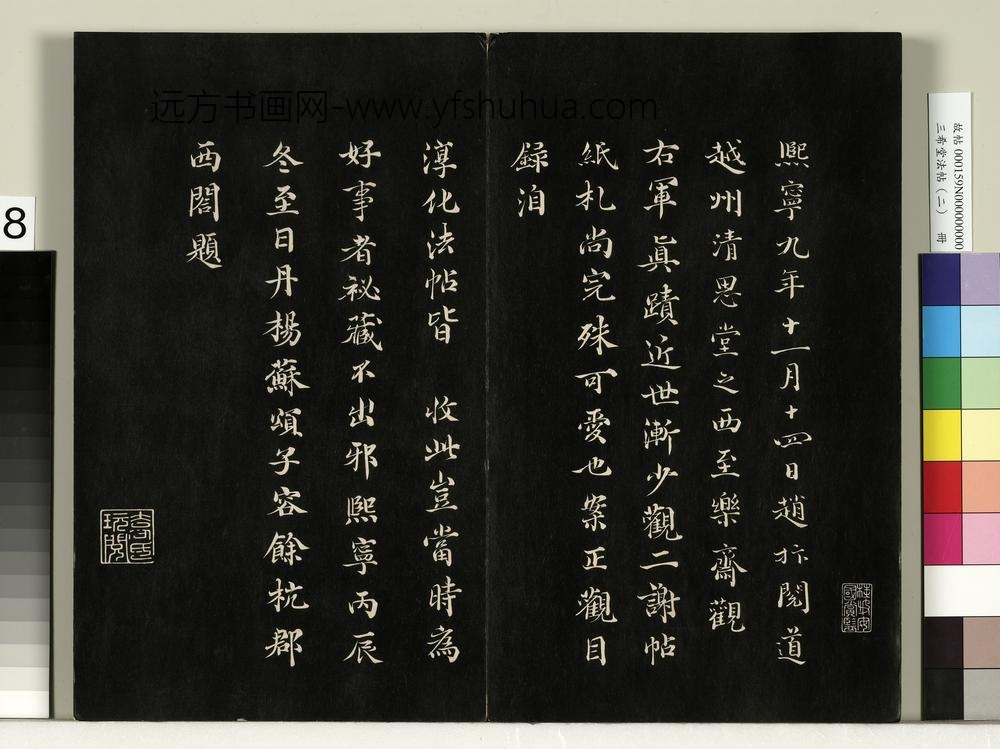 熙寧九年十一月十四日趙抃閱道
越州清思堂之西至樂齋觀
右軍真蹟近世漸少觀二謝帖
紙札尚完殊可愛也案正觀目
録洎
淳化法帖皆 收此豈當時為
好事者祕藏不出邪熙寧丙辰
冬至日丹楊蘇頌子容餘杭郡
西閤題
远方书画网-www.yfshuhua.com
故帖 000159N000000000
三希堂法帖(二) 冊
8